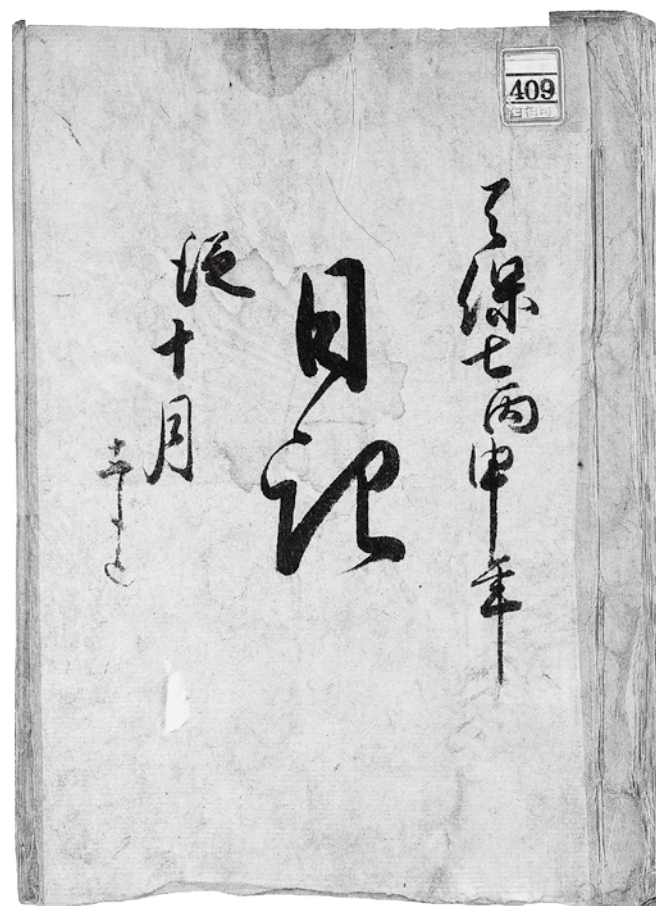 409
天保七丙申年
日記
從十月